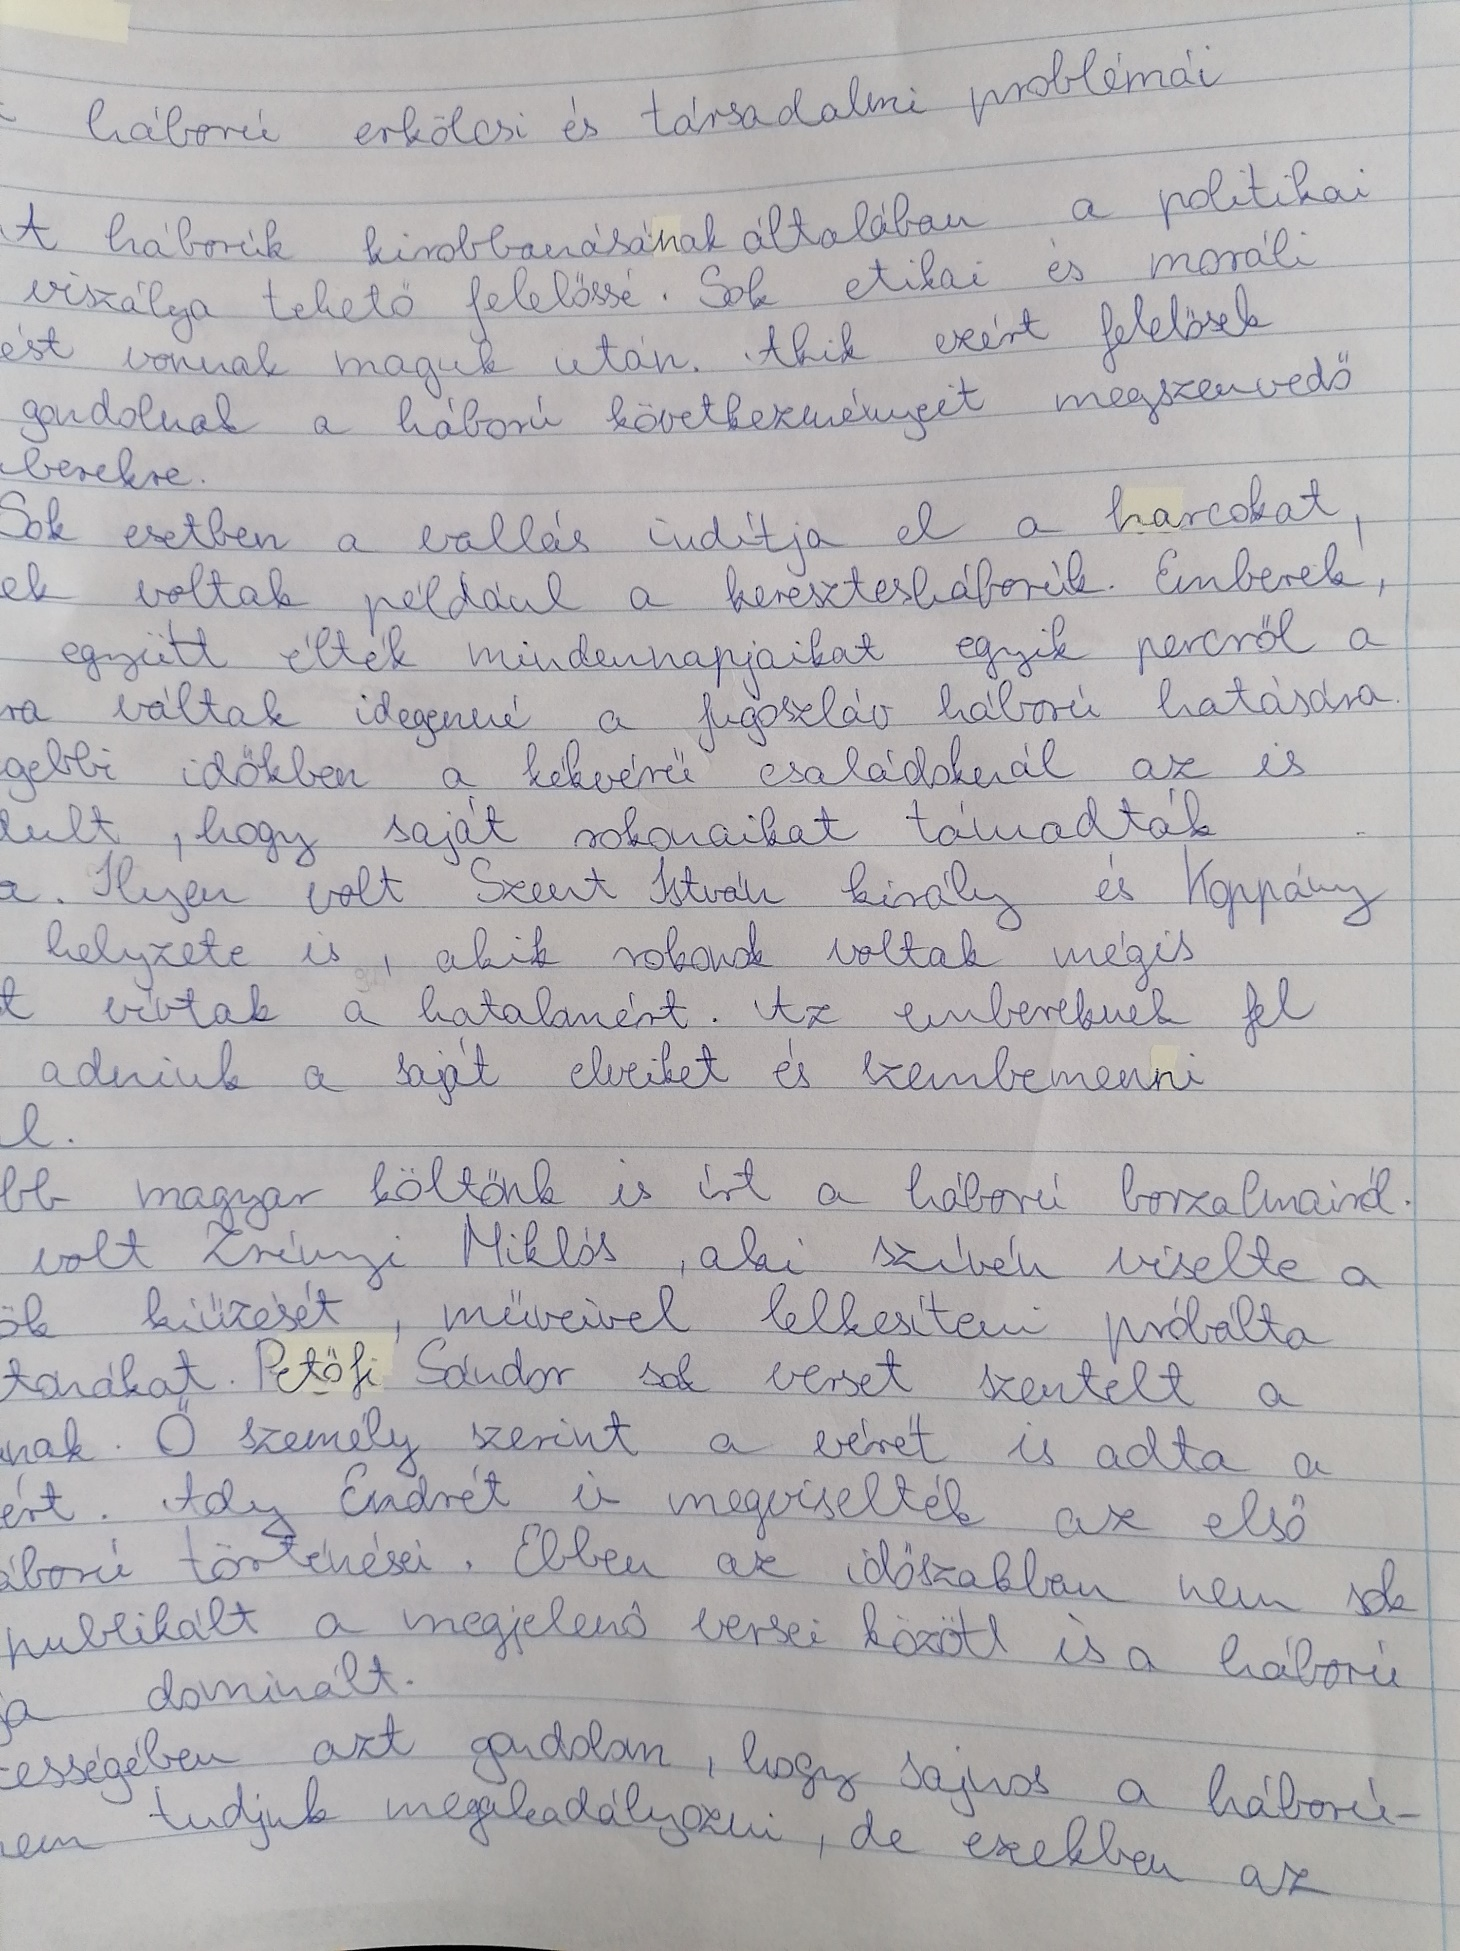 háború erkölcsi és társadalmi problémái
A háborúk kirobbanásának általában a politikai
viszálya tehető felelőssé. Sok etikai és moráli
ést vonnak maguk után. Akik ezért felelősek
gondolnak a háború következményeit megszenvedő
berekre.
Sok esetben a vallás indítja el a harcokat,
ek voltak például a keresztesháborúk. Emberek,
együtt élték mindennapjaikat egyik percről a
ra váltak idegenné a jugoszláv háború hatására.
gebbi időkben a kékvérű családoknál az is
dult, hogy saját rokonaikat támadták
a. Ilyen volt Szent István király és Koppány
helyzete is, akik rokonok voltak mégis
t vívtak a hatalamért. Az embereknek fel
adniuk a saját elveiket és szembemenni
l.
bb magyar költőnk is írt a háború borzalmairól.
volt Zrínyi Miklós, aki szívén viselte a
ök kiűzését, műveivel lelkesíteni próbálta
tonákat. Petőfi Sándor sok verset szentelt a
nak. Ő személy szerint a vérét is adta a
ért. Ady Endrét is megviselték az első
áború történései. Ebben az időszakban nem sok
publikált a megjelenő versei között is a háború
ja dominált.
zességében azt gondolom, hogy sajnos a háború-
nem tudjuk megakadályozni, de ezekben az